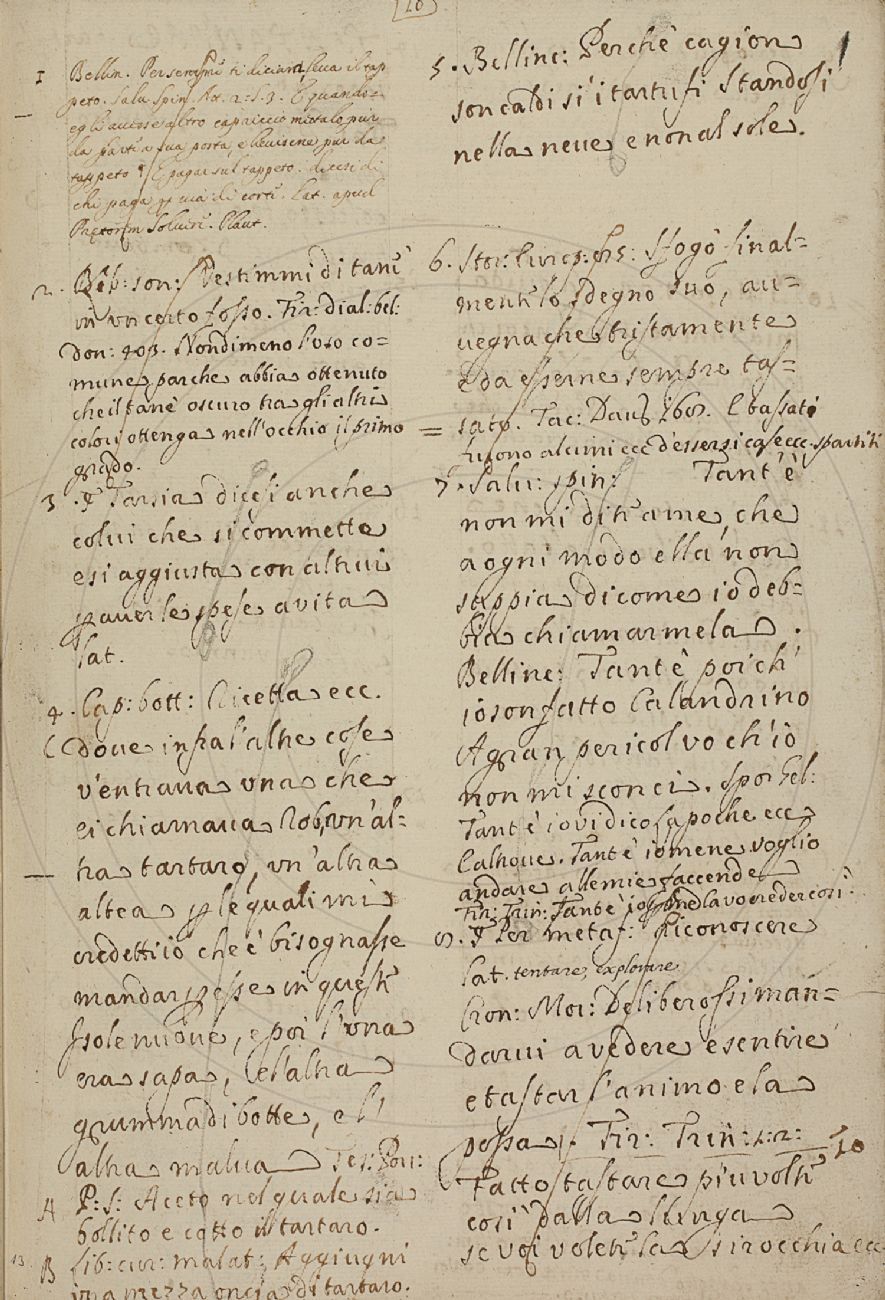 1 Bellin. Per
peto. Salv. Spin. At. 2. S. 3. E quando
egli avesse altro capriccio
da farti a sua posta, e pur da
tappeto E pagar sul tappeto. dicesi di
chi paga di corti. Lat. apud
Pretorem Solvere. Plaut.
2. son: Vestimmi di tanè
in un certo fosso. Fir: dial: bel:
don: 403. Nondimeno l'uso co=
mune par che abbia ottenuto
che il tanè oscuro tra gli altri
colori ottenga nell'occhio il primo
grado.
3. Tarsia dicesi anche
colui che si commette
e si aggiusta con altrui
aver le spese a vita
Lat.
4. Cap: bott: Ricetta ecc.
dove infra l'altre cose
v'entrava una che
ei chiamava Rob, un'al=
tra tartaro, un'altra
altea le quali mi
credetti io che e' bisognasse
mandar per esse in queste
Isole nuove, e poi l'una
era sapa, e l'altra
gruma di botte, e l'
altra malva Tes: Pov:
A P: S: Aceto nel quale sia
bollito e cotto il tartaro.
B Lib: cur: malat: Aggiugni
una mezza oncia di tartaro.
5. Bellinc: Perchè cagion
son caldi sì i tartufi Standosi
nella neve e non al sole.
6. Stor: Sfogò final=
mente lo sdegno suo, av=
vegna che tristamente
e da esserne sempre tas=
sato. Tac: Dav: E tassati
furono alcuni ecc d'essersi ecc. spartiti
7. Salv: Spin: Tant'è
non mi dite a me, che
a ogni modo ella non
sappia di come io deb=
bia chiamarmela.
Bellinc: Tant'è poich'
io son fatto Calandrino
A gran pericol vo ch'io
non mi sconci. Sporgel:
Tant'è io vi dico ecc
Tant'è io me ne voglio
andare alle mie faccende
Fir: Trin: Tant'è io non la vo creder così.
8. Per metaf: Riconoscere
Lat. tentare, explorare
Cron: Mor: Deliberossi man=
darvi a vedere e sentire
e tastar l'animo e la
possa. Fir: Trin: 2: 2: 10
Fatto tastare più volte
così dalla lunga
se voi volete la sirocchia ecc